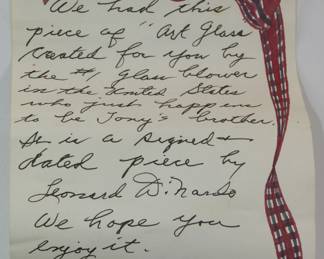 We had this
piece of "Art Glass
created for you by
the #1 glass blower
in the United States
who just happens
to be Tony's brother.
It is a signed +
dated piece by
Leonard DiNardo
We hope you
enjoy it.